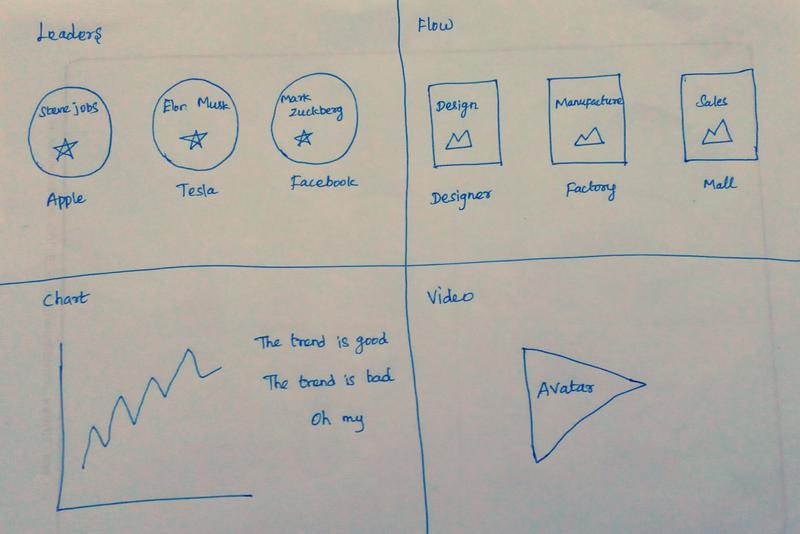 Leaders
Steve jobs
Apple
Elon Musk
Tesla
Mark
Zuckberg
Facebook
Flow
Design
Designer
Manufacture
Factory
Sales
Mall
Chart
The trend is good
The trend is bad
Oh my
Video
Avatar